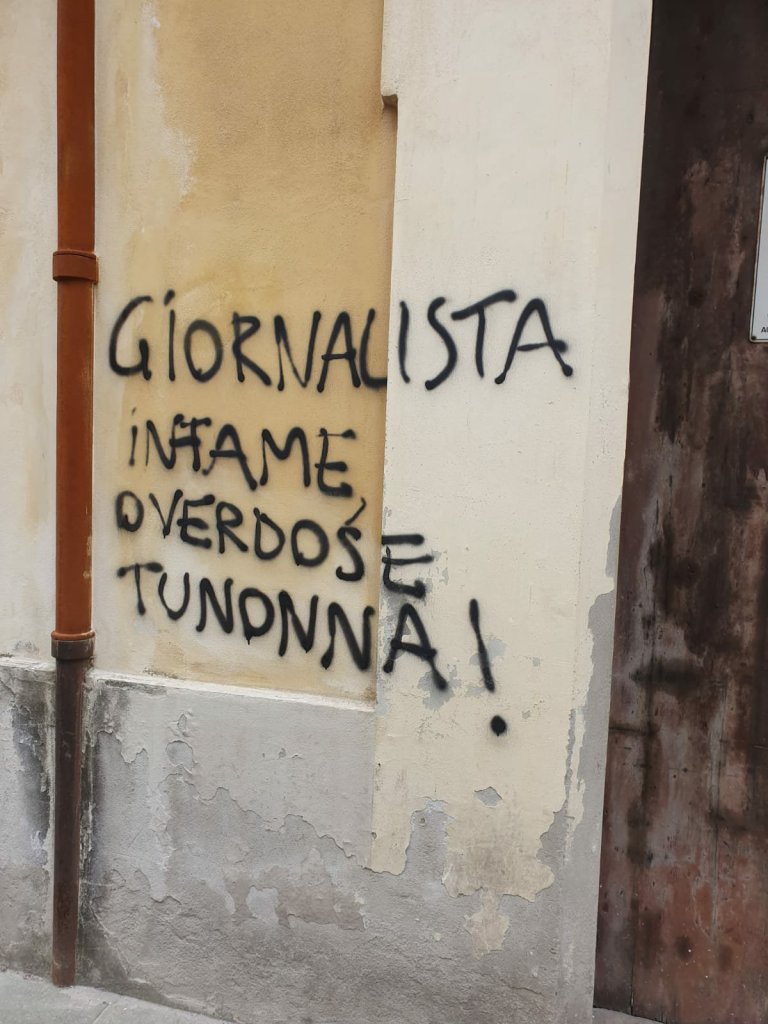 GIORNALISTA
INFAME
OVERDOSE
TUNONNA!